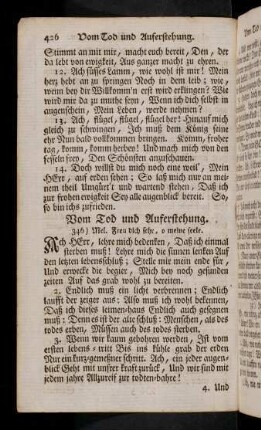 426 Vom Tod und Auferstehung.
Stimmt an mit mir, macht euch bereit, Den, der
da lebt von ewigkeit, Aus ganzer macht zu ehren.
12. Ach süsses Lamm, wie wohl ist mir! Mein
herz hebt an zu springen Noch in dem leib; wie,
wenn bey dir Willkomm'n erst wird erklingen? Wie
wird mir da zu muthe seyn, Wenn ich dich selbst in
augenschein, Mein Leben, werde nehmen?
13. Ach, flügel, flügel, flügel her! Hinauf mich
gleich zu schwingen, Ich muß dem König seine
ehr Nun bald vollkommen bringen. Komm, froher
tag, komm, komm herbey! Und mach mich von den
fesseln frey, Den Schönsten anzuschauen.
14. Doch willst du mich noch eine weil, Mein
HErr, auf erden sehen; So laß mich nur an mei-
nem theil Umgürt't und wartend stehen, Daß ich
zur frohen ewigkeit Sey alle augenblick bereit. So,
so bin ichs zufrieden.
Vom Tod und Auferstehung.
346) Mel. Freu dich sehr, o meine seele.
Ach HErr, lehre mich bedenken, Daß ich einmal
sterben muß! Lehre mich die sinnen lenken Auf
den letzten lebensschluß; Stelle mir mein ende für,
Und erwecke die begier, Mich bey noch gesunden
zeiten Auf das grab wohl zu bereiten.
2. Endlich muß ein licht verbrennen; Endlich
laufft der zeiger aus: Also muß ich wohl bekennen,
Daß ich dieses leimen-haus Endlich auch gesegnen
muß: Denn es ist der alte schluß: Menschen, als des
todes erben, Müssen auch des todes sterben.
3. Wenn wir kaum gebohren werden, Ist vom
ersten lebens-tritt Bis ins kühle grab der erden
Nur ein kurz-gemeßner schritt. Ach, ein jeder augen-
blick Geht mit unsrer kraft zurück, Und wir sind mit
jedem jahre Allzureif zur todten-bahre!
4. Und